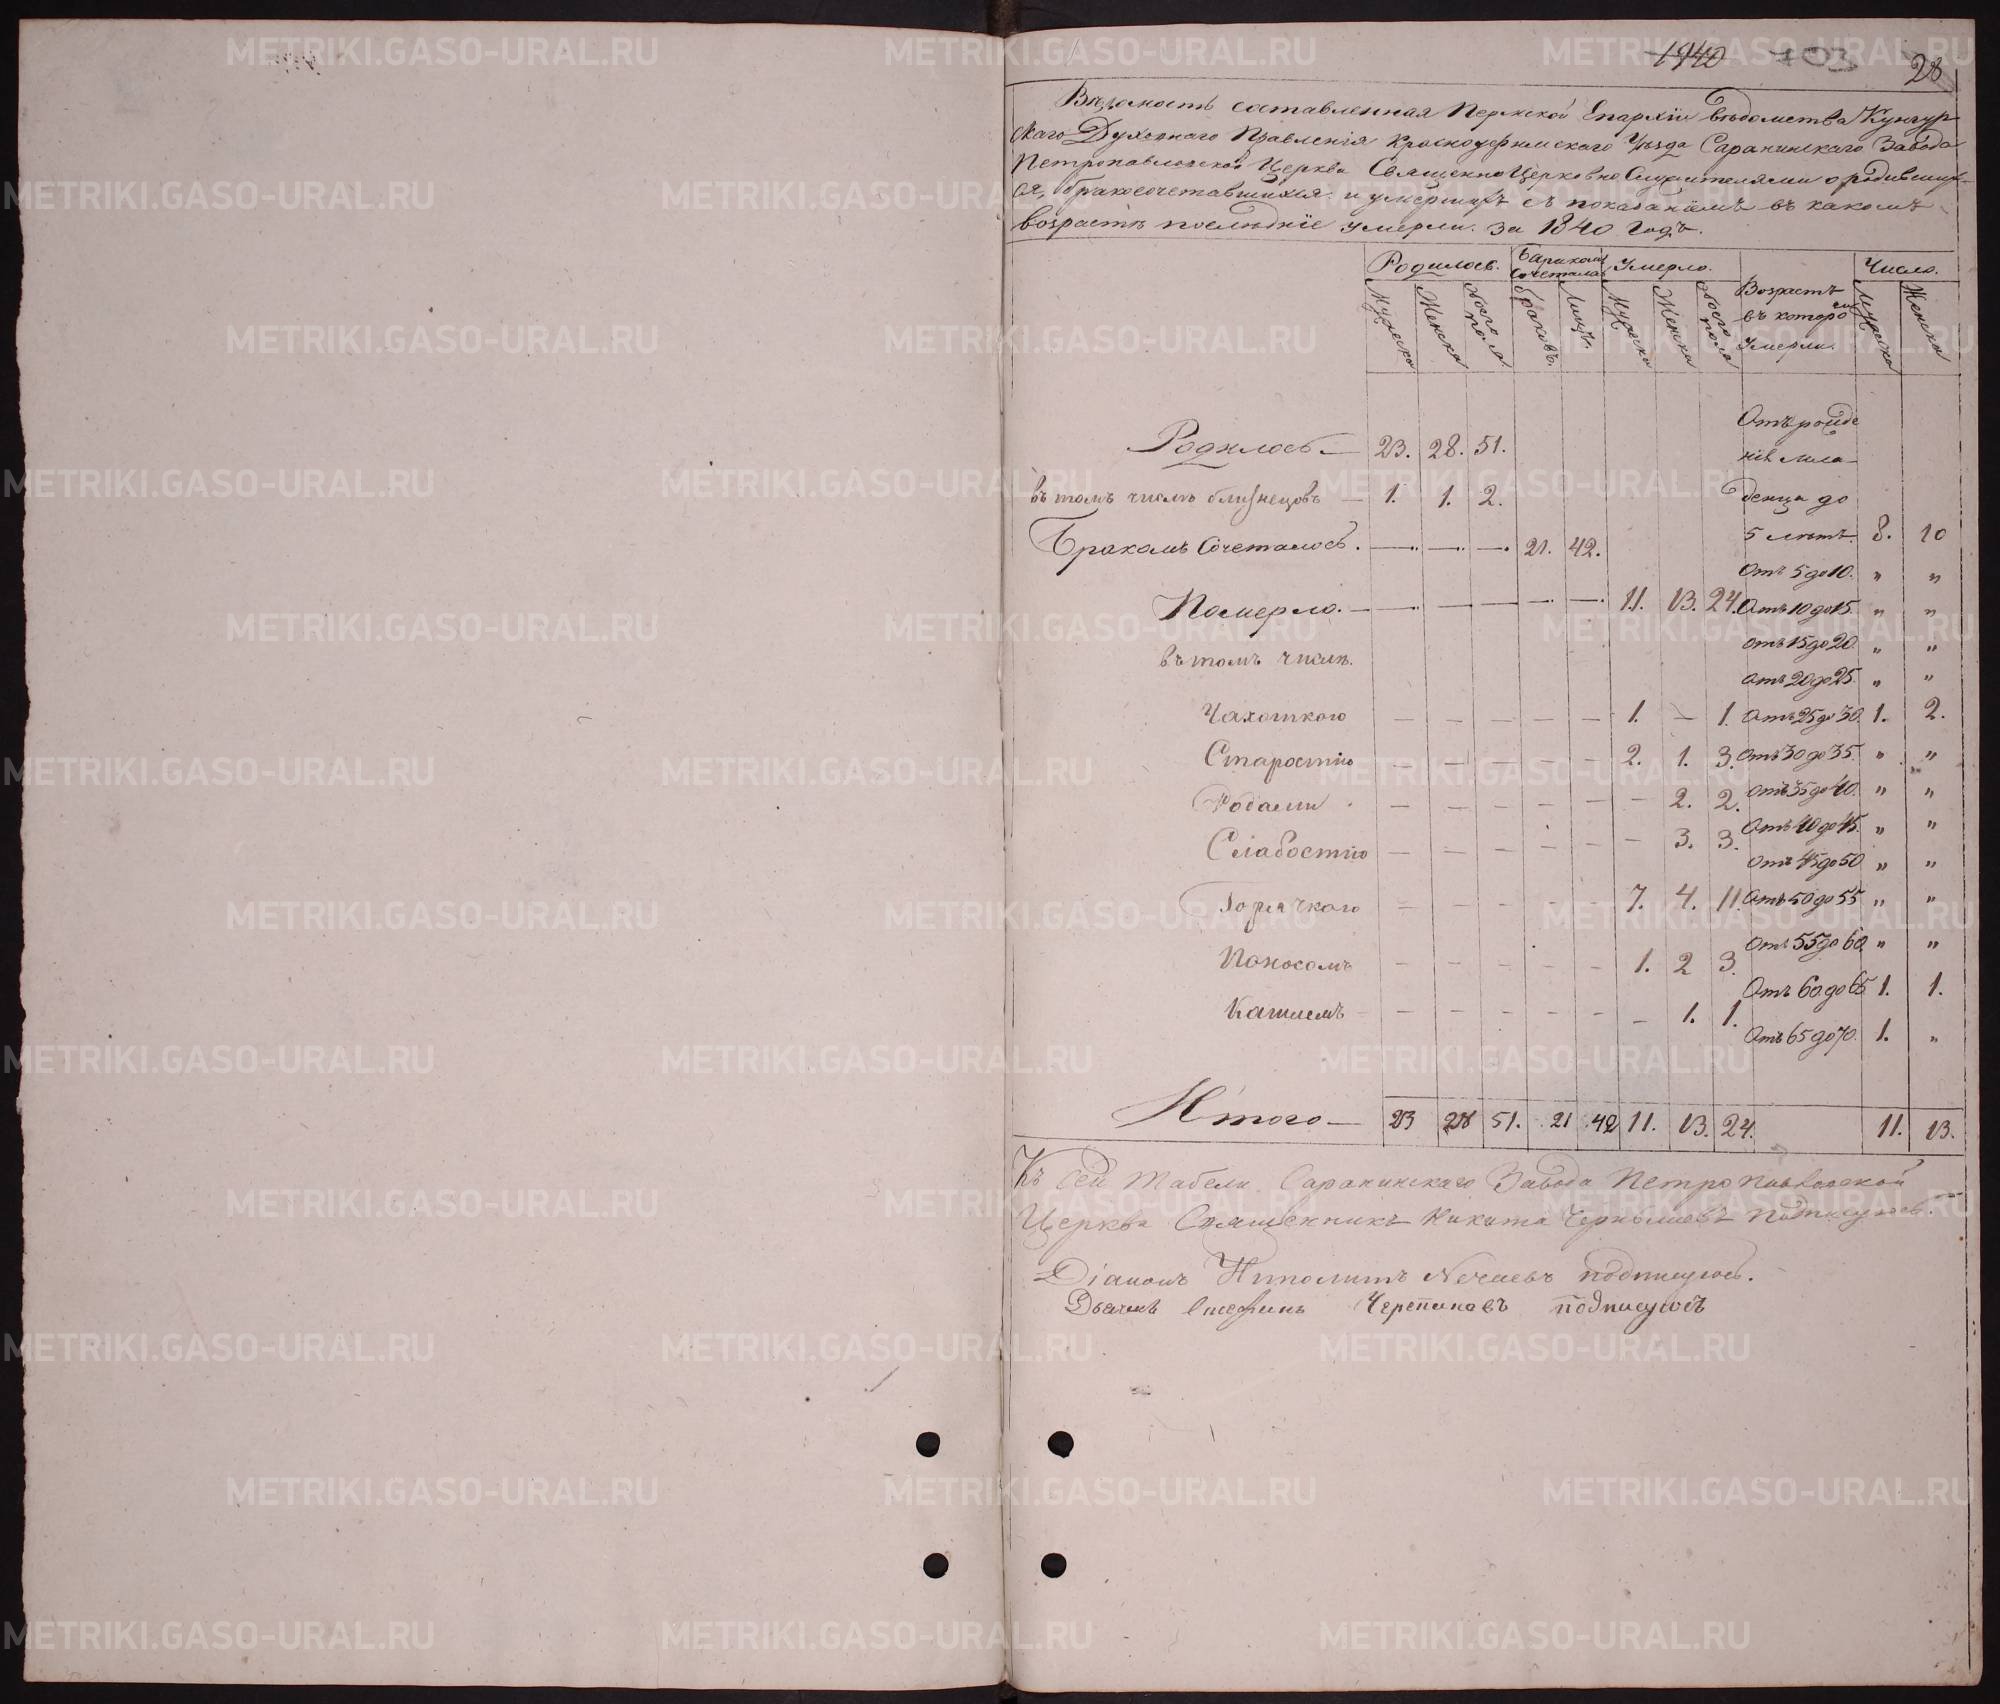 1840 103 28
Ведомость составленная Пермской Епархіи ведомства Кунгур
скаго Духовнаго Правленія Красноуфимскаго Уѣзда Саранинскаго Завода
Петропавловской Церкви СвященноЦерковноСлужителями о родивших
ся, бракосочетавшихся и умершихъ съ показаніемъ въ какомъ
возрастѣ послѣдніе умерли. За 1840 Годъ.
Родилось. Бракомъ Сочеталось Умерло. Возрастъ въ которо Умерли. Число.
Мужеска Женска Обоего пола Браковъ. Лицъ. Мужеска Женска Обоего пола Мужеска Женска
Родилось — 23. 28. 51. Отъ рожде
нія мла
въ томъ числѣ близнецовъ — 1. 1. 2. денца до
Бракомъ Сочеталось. — — — 21. 42. 5 лѣтъ. 8. 10
Отъ 5 до 10. " "
Померло. — — — — — — 11. 13. 24. Отъ 10 до 15. " "
въ томъ числѣ. отъ 15 до 20. " "
отъ 20 до 25. " "
Чахоткою — — — — — 1. — 1. Отъ 25 до 30 1. 2.
Старостію — — — — — 2. 1. 3. отъ 30 до 35. " "
Родами — — — — — — 2. 2. отъ 35 до 40. " "
Слабостію — — — — — — 3. 3. Отъ 40 до 45. " "
отъ 45 до 50 " "
Горячкою — — — — — 7. 4. 11. Отъ 50 до 55 " "
Отъ 55 до 60 " "
Поносомъ — — — — — 1. 2 3. Отъ 60 до 65 1. 1.
Кашлемъ — — — — — — 1. 1. Отъ 65 до 70. 1. "
Итого — 23 28 51. 21 42 11. 13. 24. 11. 13.
Къ сей табели Саранинскаго Завода Петропавловской
Церкви Священникъ Никита Чернышевъ подписуюсь.
Діаконъ Иполитъ Нечаевъ подписуюсь.
Дьячекъ Черепановъ подписуюсъ
METRIKI.GASO-URAL.RU